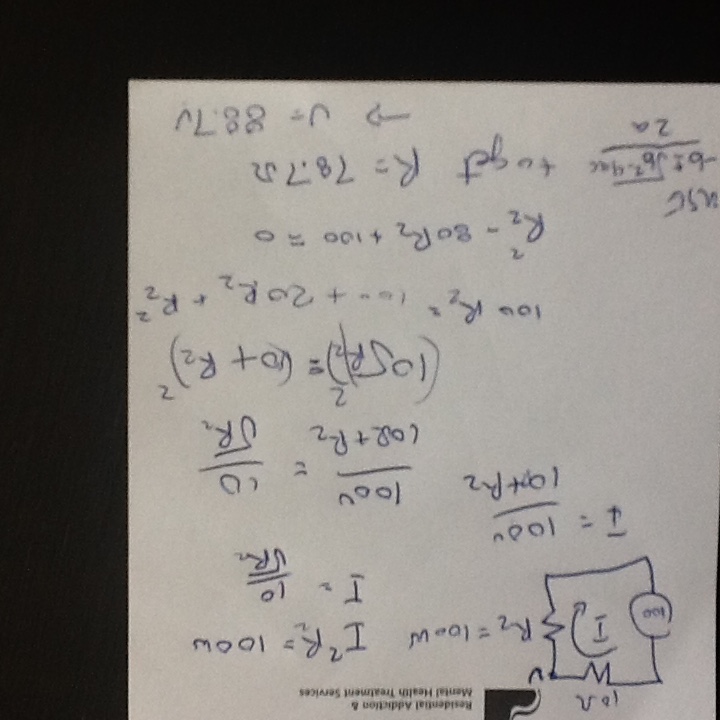 Residential Addiction &
Mental Health Treatment Services
10Ω
V
100 I R₂ = 100W I²R₂ = 100W
I = 10/√R₂
I = 100v/(10+R₂)
100v/(10Ω+R₂) = 10/√R₂
(10√R₂)² = (10+R₂)²
100R₂ = 100 + 20R₂ + R₂²
R₂² - 80R₂ + 100 = 0
USE
(-b±√b²-4ac)/2a to get R = 78.7Ω
⇒ V = 88.7V